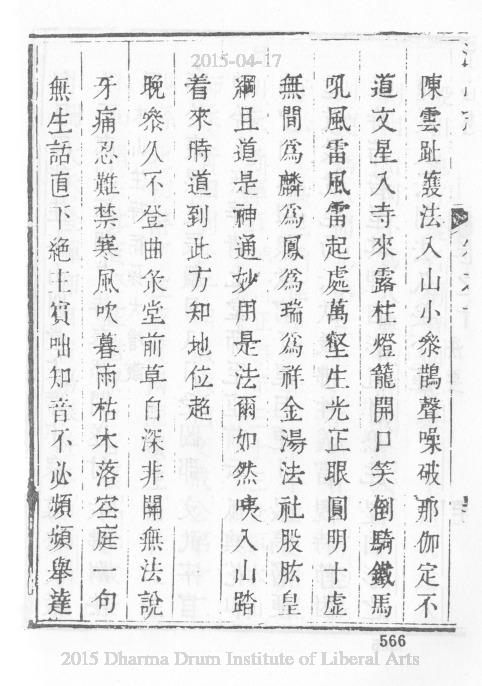 2015-04-17
陳雲趾護法入山小參鵲聲噪破那伽定不
道文星入寺來露柱燈籠開口笑倒騎鐵馬
吼風雷風雷起處萬壑生光正眼圓明十虛
無間為麟為鳳為瑞為祥金湯法社股肱皇
綱且道是神通妙用是法爾如然咦入山踏
着來時道到此方知地位超
晚參久不登曲彔堂前草自深非關無法說
牙痛忍難禁寒風吹暮雨枯木落空庭一句
無生話直下絕主賓咄知音不必頻頻舉達
566
2015 Dharma Drum Institute of Liberal Arts